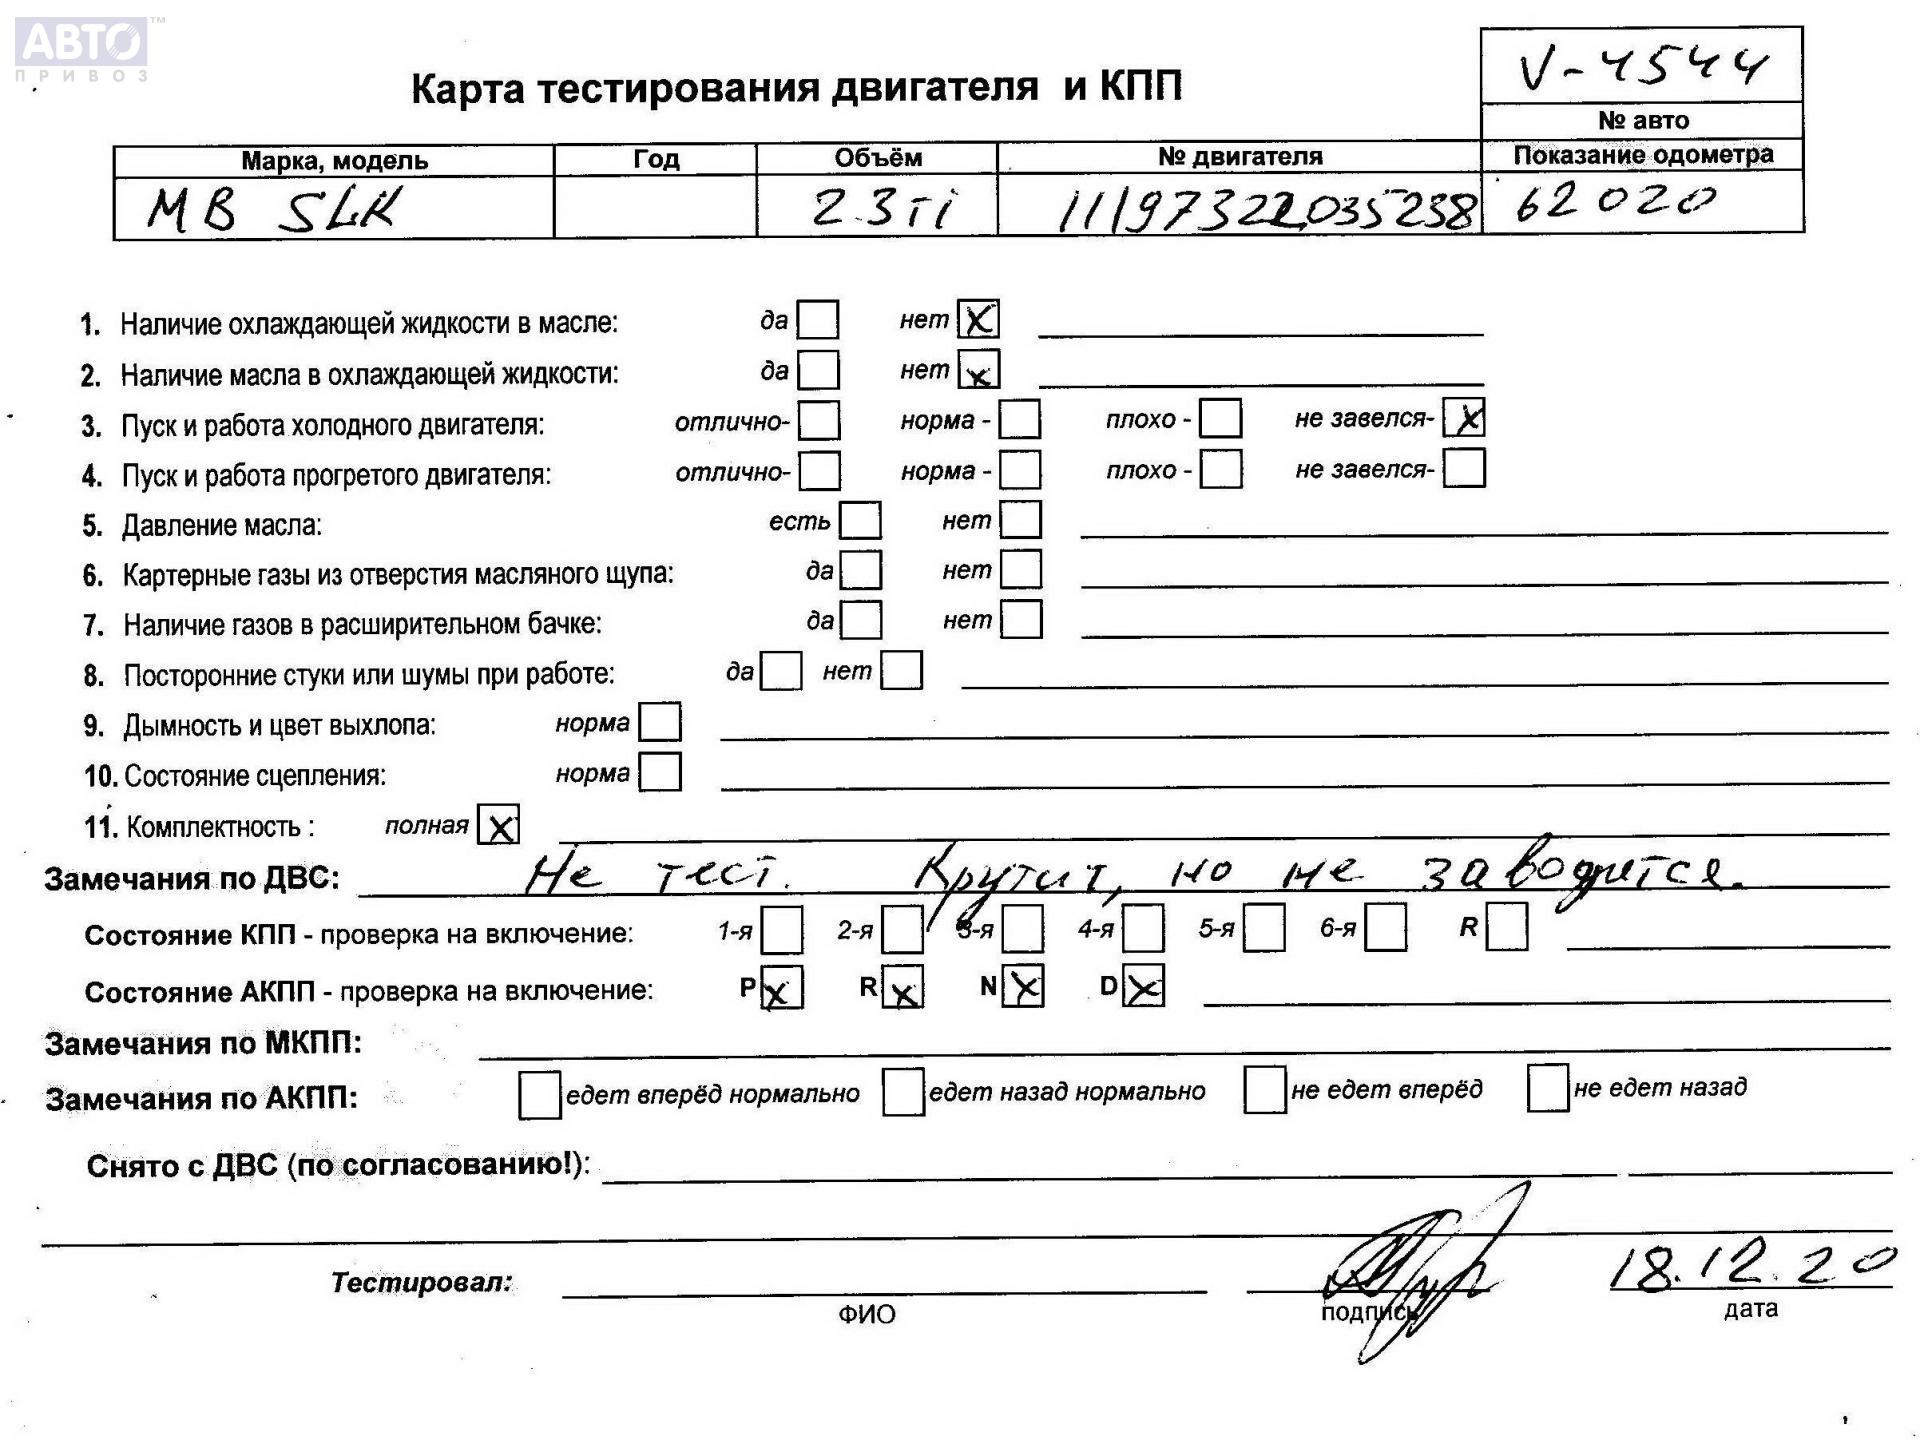 АВТО™
ПРИВОЗ
Карта тестирования двигателя и КПП
V-4544
№ авто
Марка, модель Год Объём № двигателя Показание одометра
MB SLK 2.3 Ti 62020
1. Наличие охлаждающей жидкости в масле: да нет X
2. Наличие масла в охлаждающей жидкости: да нет X
3. Пуск и работа холодного двигателя: отлично- норма - плохо - не завелся- X
4. Пуск и работа прогретого двигателя: отлично- норма - плохо - не завелся-
5. Давление масла: есть нет
6. Картерные газы из отверстия масляного щупа: да нет
7. Наличие газов в расширительном бачке: да нет
8. Посторонние стуки или шумы при работе: да нет
9. Дымность и цвет выхлопа: норма
10. Состояние сцепления: норма
11. Комплектность : полная X
Замечания по ДВС: Не тест. Крутит, но не заводится.
Состояние КПП - проверка на включение: 1-я 2-я 3-я 4-я 5-я 6-я R
Состояние АКПП - проверка на включение: P X R X N X D X
Замечания по МКПП:
Замечания по АКПП: едет вперёд нормально едет назад нормально не едет вперёд не едет назад
Снято с ДВС (по согласованию!):
Тестировал: 18.12.20
ФИО подпись дата